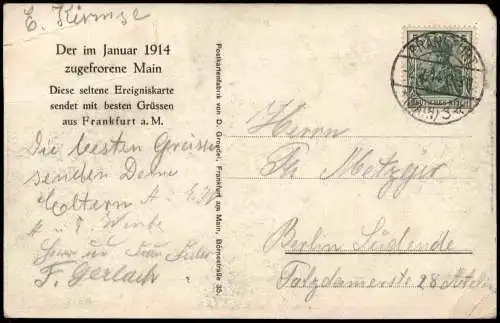 E. Kirmse
Der im Januar 1914
zugefrorene Main
Diese seltene Ereigniskarte
sendet mit besten Grüssen
aus Frankfurt a. M.
Die besten Greisse
senden Deine
Eltern A. E. K
F. Gerlach
Postkartenfabrik von D. Groedel, Frankfurt am Main, Börnestraße 35.
FRANKFURT
DEUTSCHES REICH
Herrn
Metzger
Berlin Südende
Potzdamerst 28